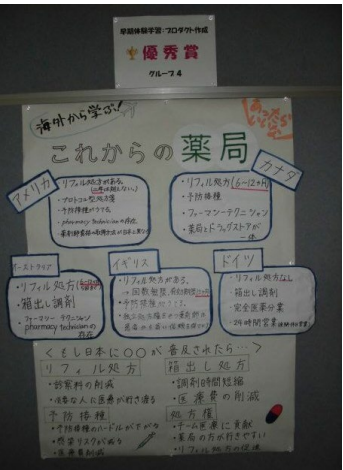 早期体験学習:プロダクト作成
優秀賞
グループ4
海外から学ぶ!
これからの薬局
アメリカ
・リフィル処方がある。
・プロトコル型処方箋
・予防接種ができる。
・pharmacy technicianの存在
カナダ
・リフィル処方(6~12ヶ月)
・予防接種
・ファーマシーテクニシャン
・薬局とドラッグストアが
一体
オーストラリア
・リフィル処方
・箱出し調剤
・ファーマシーテクニシャン
pharmacy technicianの
存在
イギリス
・リフィル処方がある。
→回数無限、
・予防接種
ドイツ
・リフィル処方なし
・箱出し調剤
・完全医薬分業
・24時間営業
<もし日本に〇〇が普及されたら…>
リフィル処方
・診察料の削減
・必要な人に医療が行き渡る
予防接種
・予防接種のハードルが下がる
・感染リスクが減る
・医療費削減
箱出し処方
・調剤時間短縮
・医療費の削減
処方権
・チーム医療に貢献
・薬局の方が行きやすい
・リフィル処方の促進